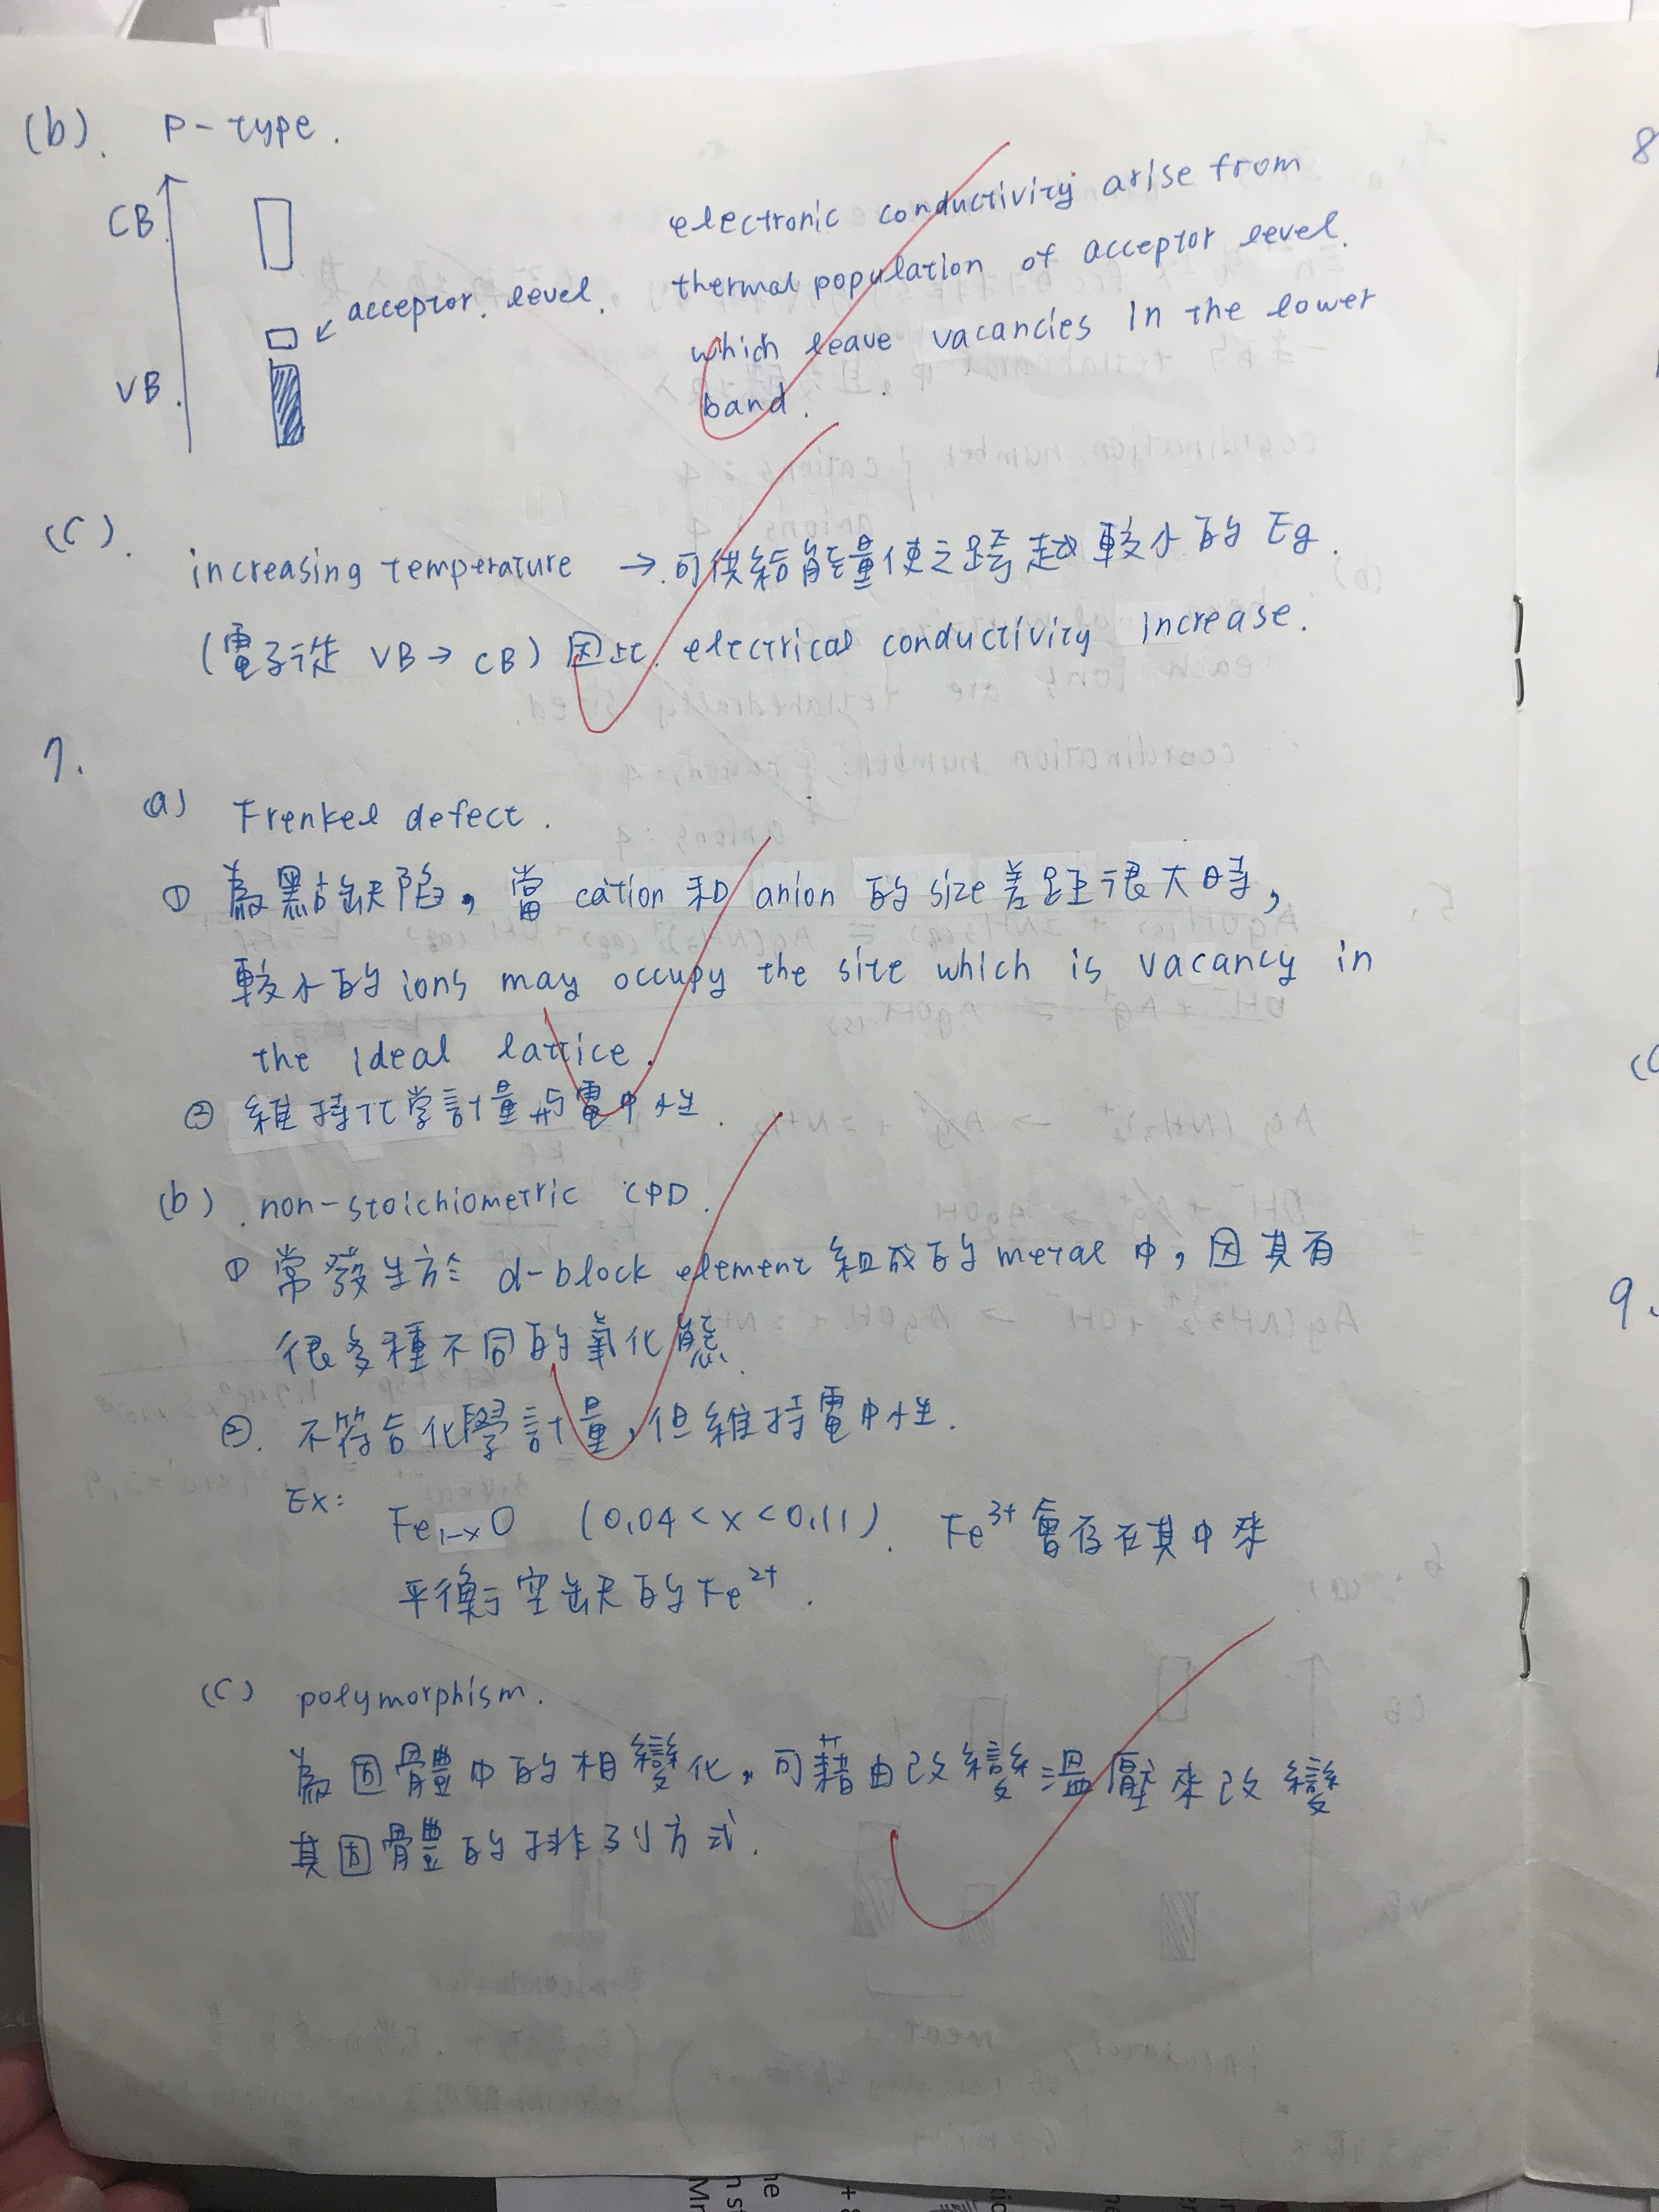 (b). P-type.
CB
acceptor level.
VB.
electronic conductivity arise from
thermal population of acceptor level.
which leave vacancies in the lower
band.
(c).
increasing temperature → 可供給能量使之跨越較小的 Eg.
(電子從 VB → CB) 因此. electrical conductivity increase.
7.
(a) Frenkel defect.
① 為點缺陷, 當 cation 和 anion 的 size 差距很大時,
較小的 ions may occupy the site which is vacancy in
the ideal lattice.
② 維持化学計量与電中性.
(b). non-stoichiometric CPD.
① 常發生於 d-block element 組成的 metal 中, 因其有
很多種不同的氧化態.
②. 不符合化學計量, 但維持電中性.
Ex: Fe1-xO (0.04 < x < 0.11). Fe3+ 會存在其中來
平衡空缺的 Fe2+.
(c) polymorphism.
為固體中的相變化, 可藉由改變溫壓來改變
其固體的排列方式.
8
(c
9.